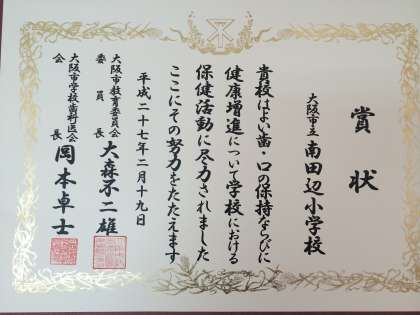 賞状
大阪市立 南田辺小学校
貴校はよい歯・口の保持ならびに
健康増進について学校における
保健活動に尽力されました
ここにその努力をたたえます
平成二十七年二月十九日
大阪市教育委員会
委員長 大森不二雄
大阪市学校歯科医会
会長 岡本卓士